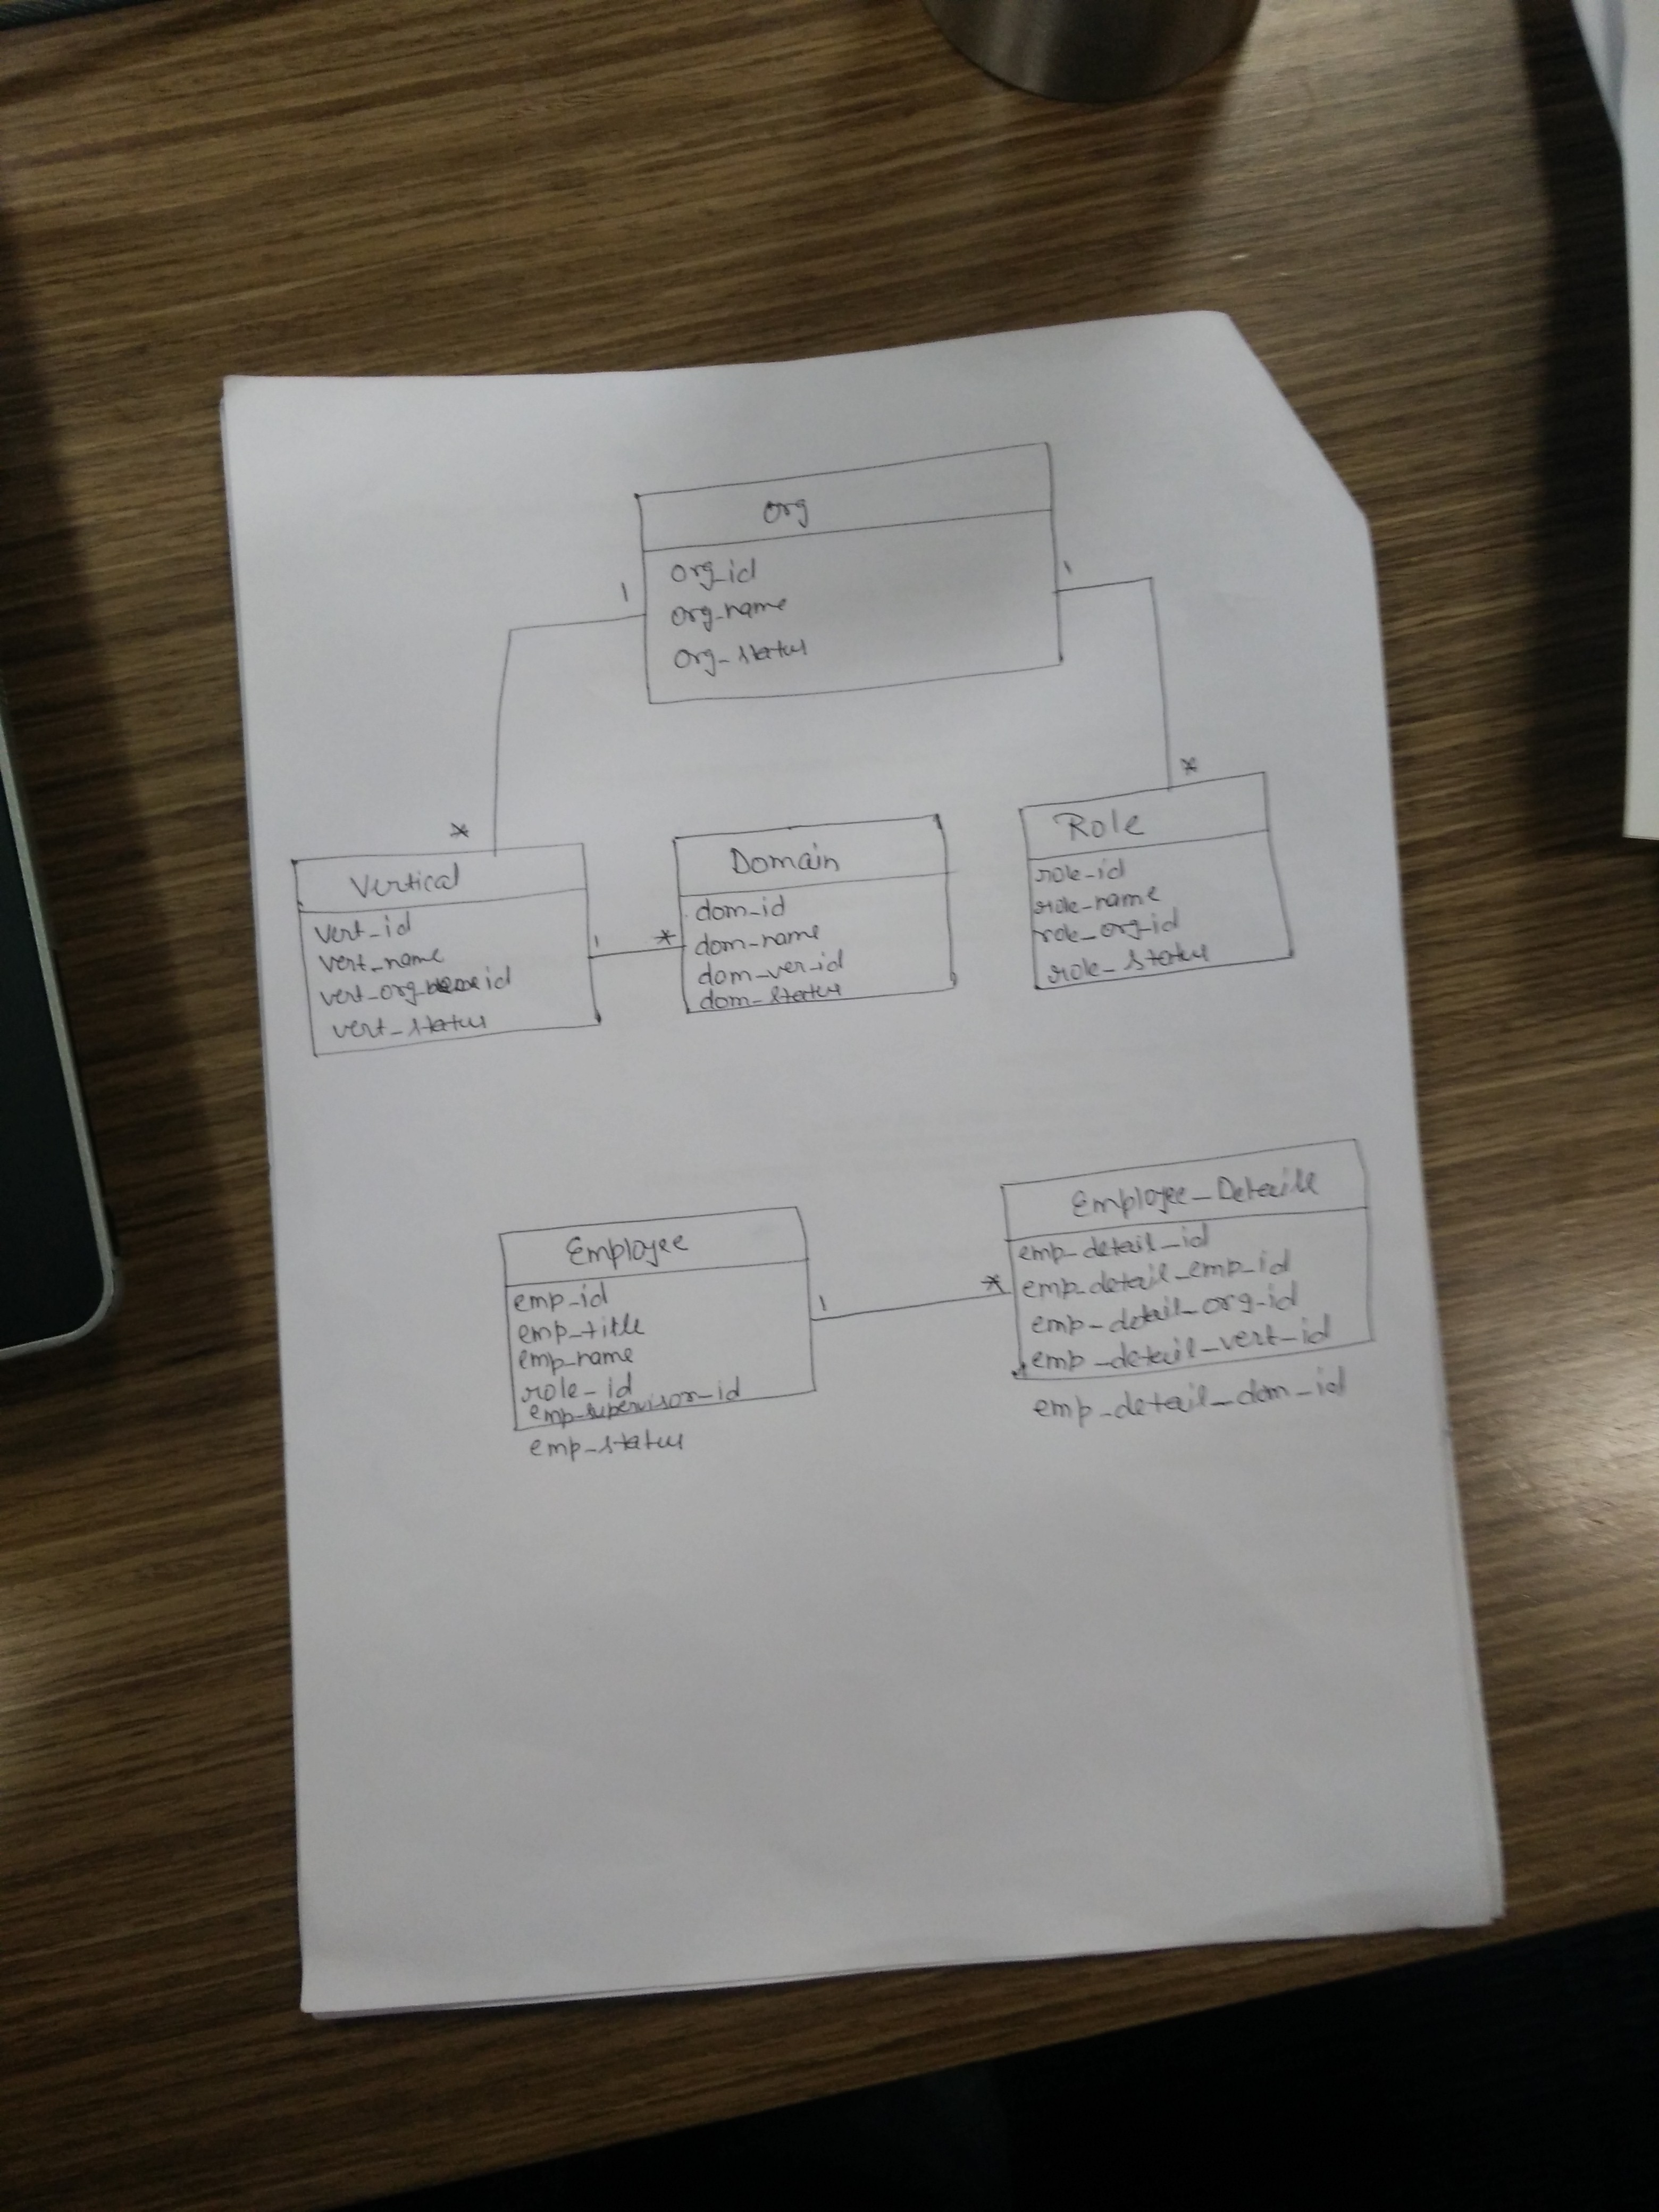 Org
org_id
org_name
org_status
1
1
*
*
Vertical
vert_id
vert_name
vert_org id
vert_status
1
*
Domain
dom_id
dom_name
dom_ver_id
dom_status
Role
role_id
role_name
role_org_id
role_status
Employee
emp_id
emp_title
emp_name
role_id
emp_supervisor_id
emp_status
1
*
Employee_Details
emp_detail_id
emp_detail_emp_id
emp_detail_org_id
emp_detail_vert_id
emp_detail_dom_id